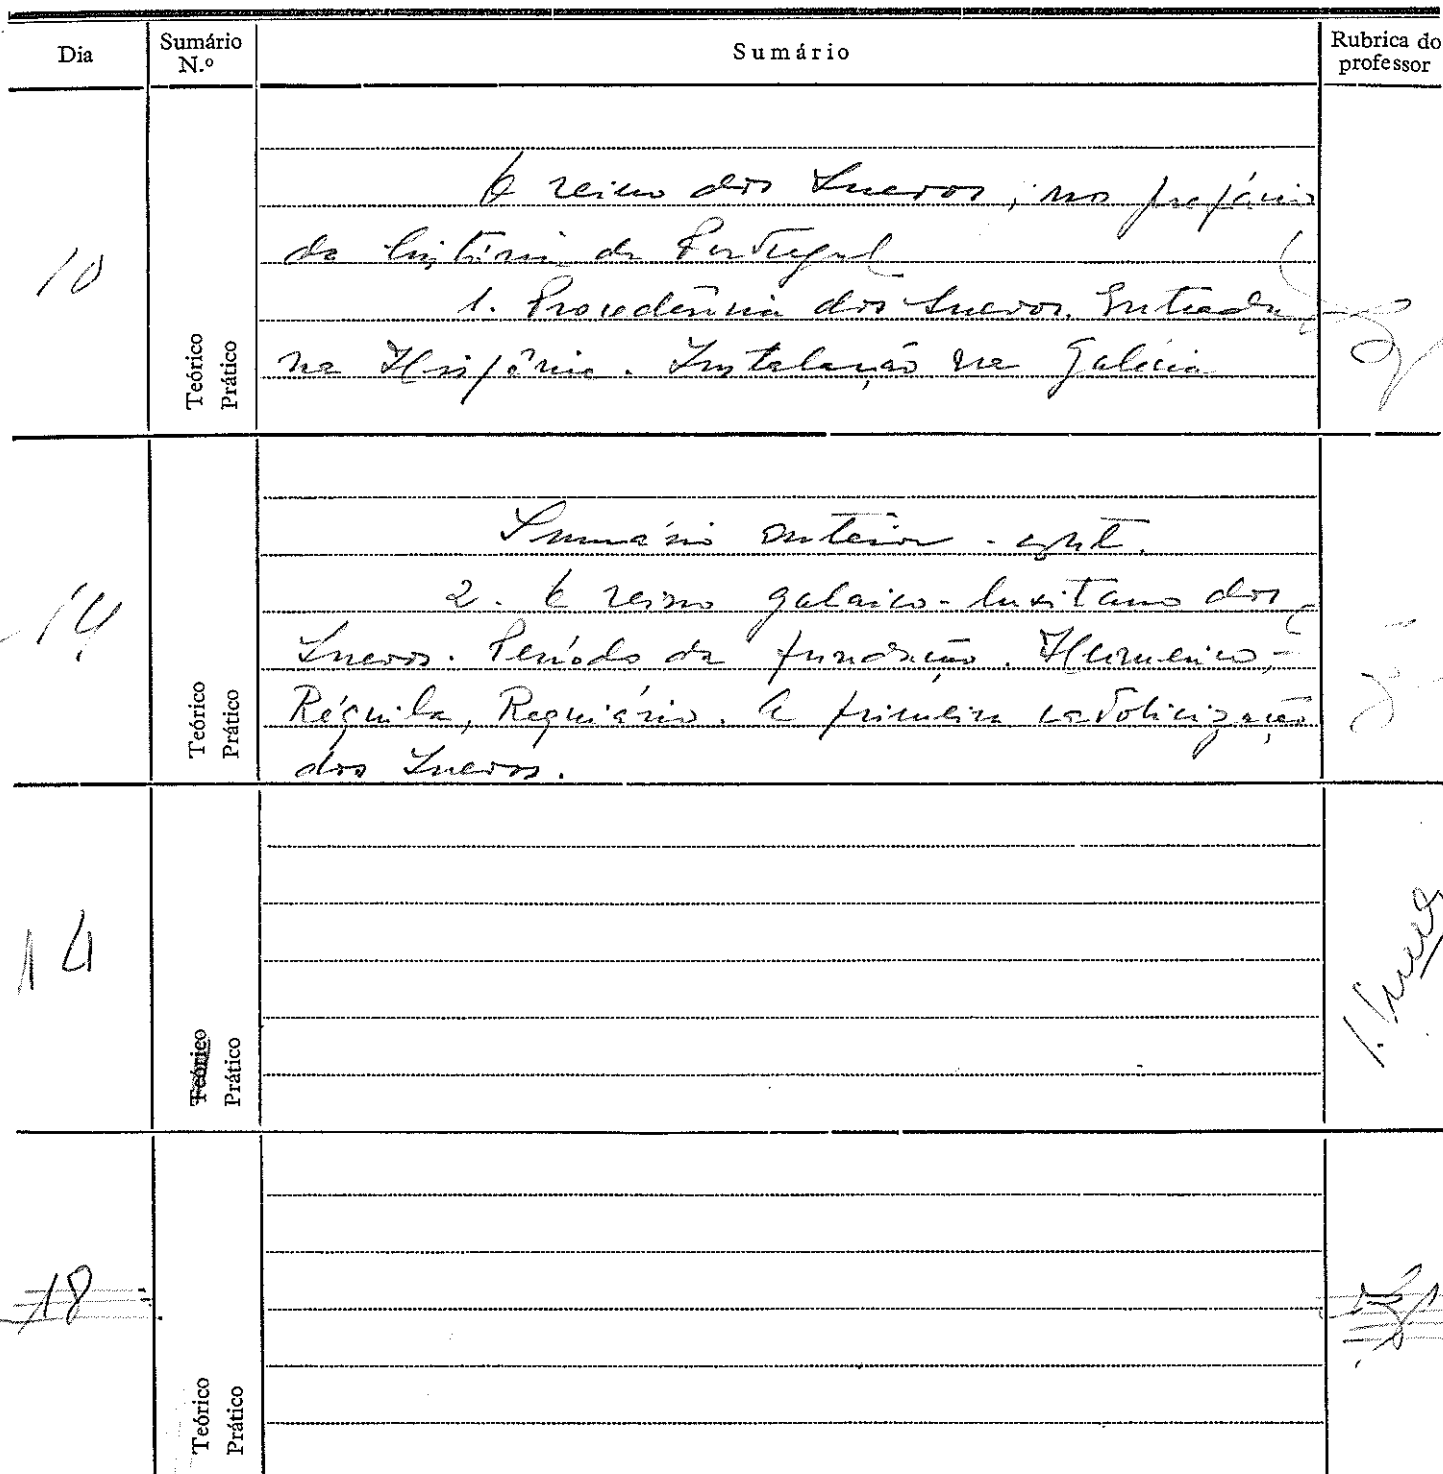 Dia
Sumário N.º
Sumário
Rubrica do professor
10
Teórico
Prático
O reino dos Suevos, no prefácio
da história de Portugal
1. Procedência dos Suevos. Entrada
na Hispânia. Instalação na Galécia
14
Teórico
Prático
Sumário anterior - cont.
2. O reino galaico-lusitano dos
Suevos. Período da fundação. Hermerico,
Réquila, Requiário. A primeira catolicização
dos Suevos.
14
Teórico
Prático
18
Teórico
Prático